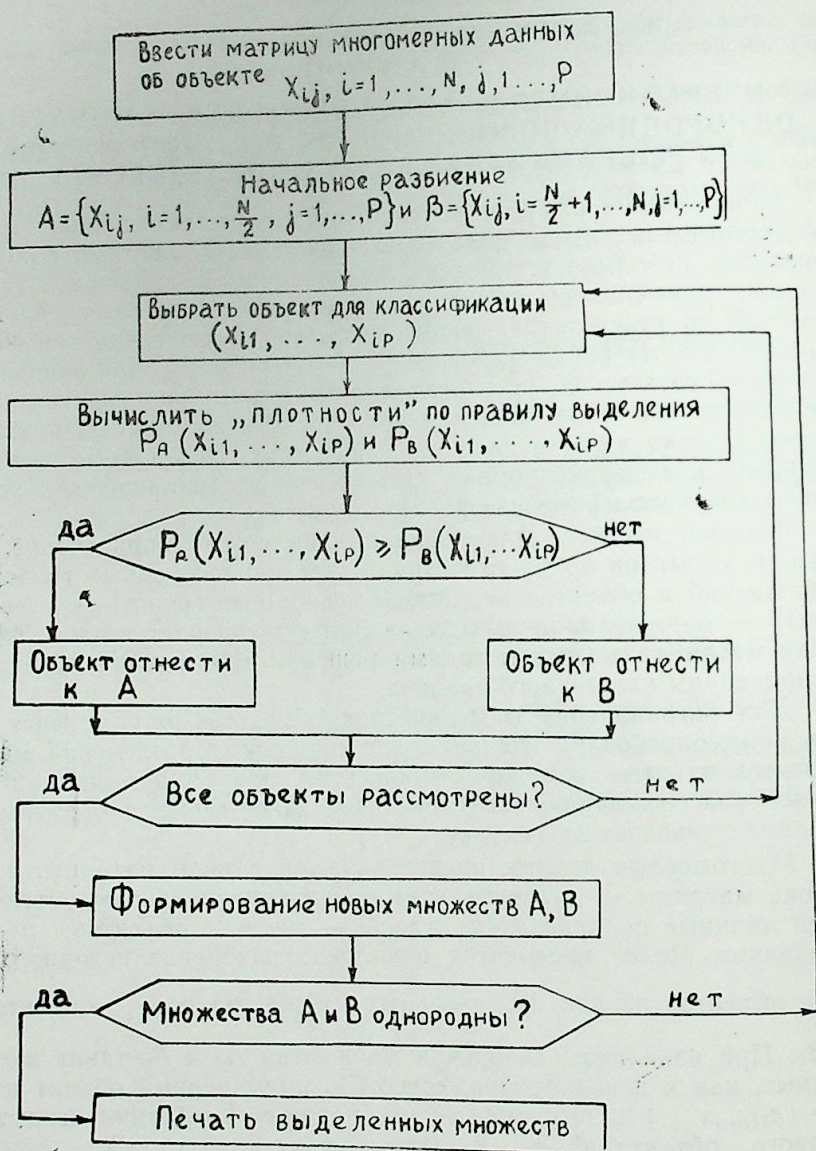 Ввести матрицу многомерных данных
об объекте X_{ij}, i=1,...,N, j,1...,P
Начальное разбиение
A={X_{ij}, i=1,...,N/2, j=1,...,P} и B={X_{ij}, i=N/2+1,...,N,j=1,...,P}
Выбрать объект для классификации
(X_{i1}, ..., X_{iP})
Вычислить „плотности" по правилу выделения
P_A (X_{i1}, ..., X_{iP}) и P_B (X_{i1}, ..., X_{iP})
да
P_A(X_{i1}, ..., X_{iP}) ⩾ P_B(X_{i1},...X_{iP})
нет
Объект отнести
к A
Объект отнести
к B
да
Все объекты рассмотрены?
нет
Формирование новых множеств A, B
да
Множества A и B однородны?
нет
Печать выделенных множеств